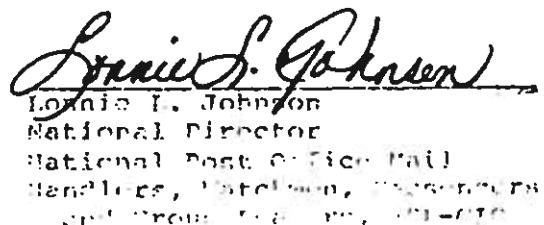 Lonnie L. Johnson
Lonnie L. Johnson
National Director
National Post Office Mail
Handlers, Watchmen, Messengers
and Group Leaders, AFL-CIO